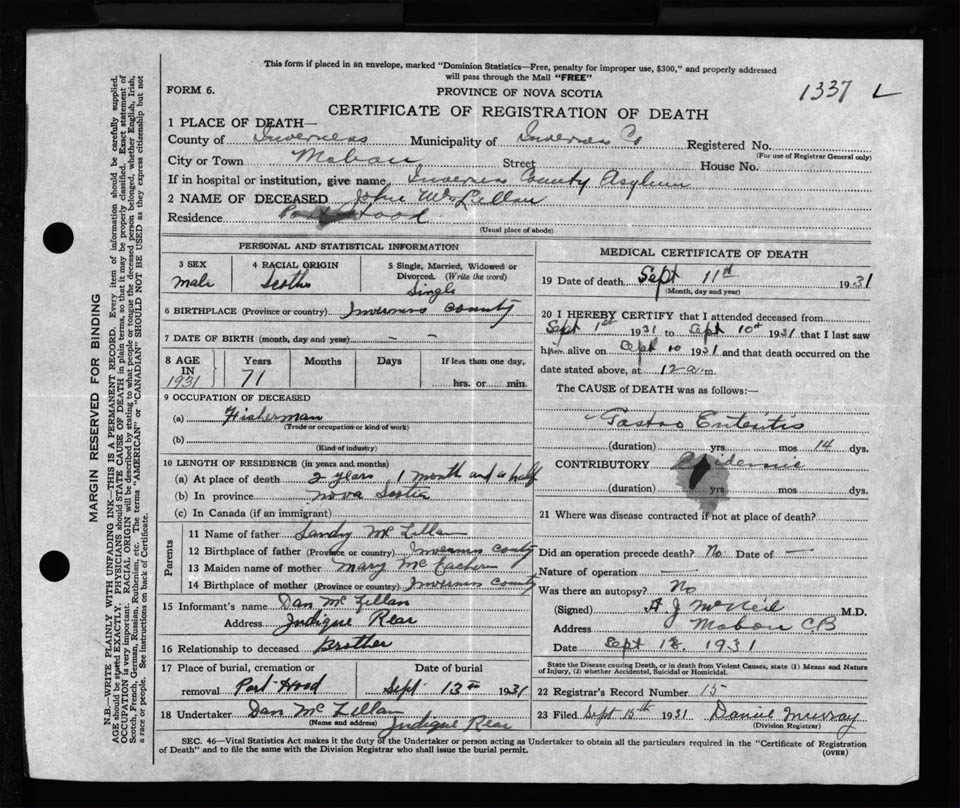 This form if placed in an envelope, marked "Dominion Statistics—Free, penalty for improper use, $300," and properly addressed
will pass through the Mail "FREE"
FORM 6.
PROVINCE OF NOVA SCOTIA
1337 L
CERTIFICATE OF REGISTRATION OF DEATH
1 PLACE OF DEATH—
County of Inverness Municipality of Inverness Co Registered No.
(For use of Registrar General only)
City or Town Mabou Street House No.
If in hospital or institution, give name Inverness County Asylum
2 NAME OF DECEASED John McLellan
Residence Port Hood
(Usual place of abode)
PERSONAL AND STATISTICAL INFORMATION
3 SEX 4 RACIAL ORIGIN 5 Single, Married, Widowed or
Divorced. (Write the word)
male Scotch Single
6 BIRTHPLACE (Province or country) Inverness County
7 DATE OF BIRTH (month, day and year) — —
8 AGE IN 1931 Years Months Days If less than one day,
71 hrs. or min.
9 OCCUPATION OF DECEASED
(a) Fisherman
(Trade or occupation or kind of work)
(b)
(Kind of industry)
10 LENGTH OF RESIDENCE (in years and months)
(a) At place of death 2 years 1 month and a half
(b) In province Nova Scotia
(c) In Canada (if an immigrant)
Parents
11 Name of father Sandy McLellan
12 Birthplace of father (Province or country) Inverness County
13 Maiden name of mother Mary McEachern
14 Birthplace of mother (Province or country) Inverness County
15 Informant's name Dan McLellan
Address Judique Rear
16 Relationship to deceased Brother
17 Place of burial, cremation or Date of burial
removal Port Hood Sept 13th 1931
18 Undertaker Dan McLellan
(Name and address) Judique Rear
MEDICAL CERTIFICATE OF DEATH
19 Date of death Sept 11th 1931
(Month, day and year)
20 I HEREBY CERTIFY that I attended deceased from
Sept 1st 1931 to Sept 10th 1931 that I last saw
him alive on Sept 10 1931 and that death occurred on the
date stated above, at 12 a.m.
The CAUSE of DEATH was as follows:—
Gastro Enteritis
(duration) yrs mos 14 dys.
CONTRIBUTORY Epidemic
(duration) yrs mos dys.
21 Where was disease contracted if not at place of death?
Did an operation precede death? No Date of —
Nature of operation —
Was there an autopsy? No
(Signed) A J McNeil M.D.
Address Mabou CB
Date Sept 1931
State the Disease causing Death, or in death from Violent Causes, state (1) Means and Nature
of Injury, (2) whether Accidental, Suicidal or Homicidal.
22 Registrar's Record Number 15
23 Filed Sept 15th 1931 Daniel Murray
(Division Registrar)
SEC. 46—Vital Statistics Act makes it the duty of the Undertaker or person acting as Undertaker to obtain all the particulars required in the "Certificate of Registration
of Death" and to file the same with the Division Registrar who shall issue the burial permit.
(OVER)
MARGIN RESERVED FOR BINDING
N.B.—WRITE PLAINLY WITH UNFADING INK—THIS IS A PERMANENT RECORD. Every item of information should be carefully supplied.
AGE should be stated EXACTLY. PHYSICIANS should STATE CAUSE OF DEATH in plain terms, so that it may be properly classified. Exact statement of
OCCUPATION is very important. RACIAL ORIGIN will be described by stating to what people or tongue the deceased person belonged, whether English, Irish,
Scotch, French, German, Russian, Ruthenian, etc. The terms "AMERICAN" or "CANADIAN" SHOULD NOT BE USED as they express citizenship but not
a race or people. See instructions on back of Certificate.